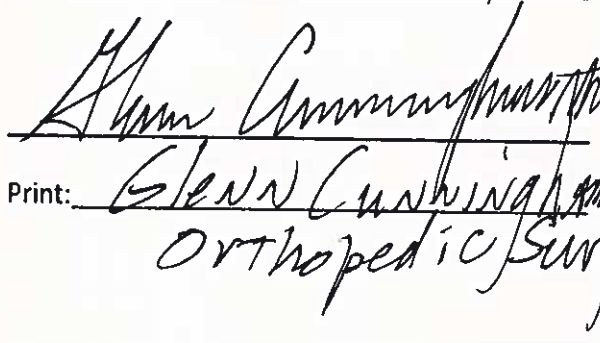 Glenn Cunningham
Print: Glenn Cunningham
Orthopedic Sur